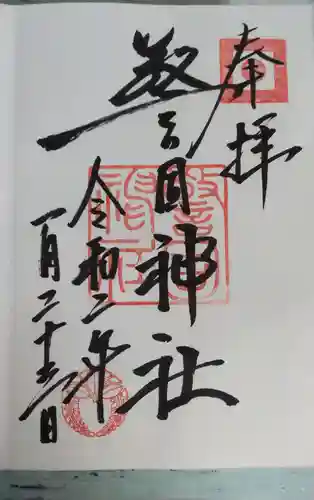 奉拝
警固神社
令和二年
一月二十五日